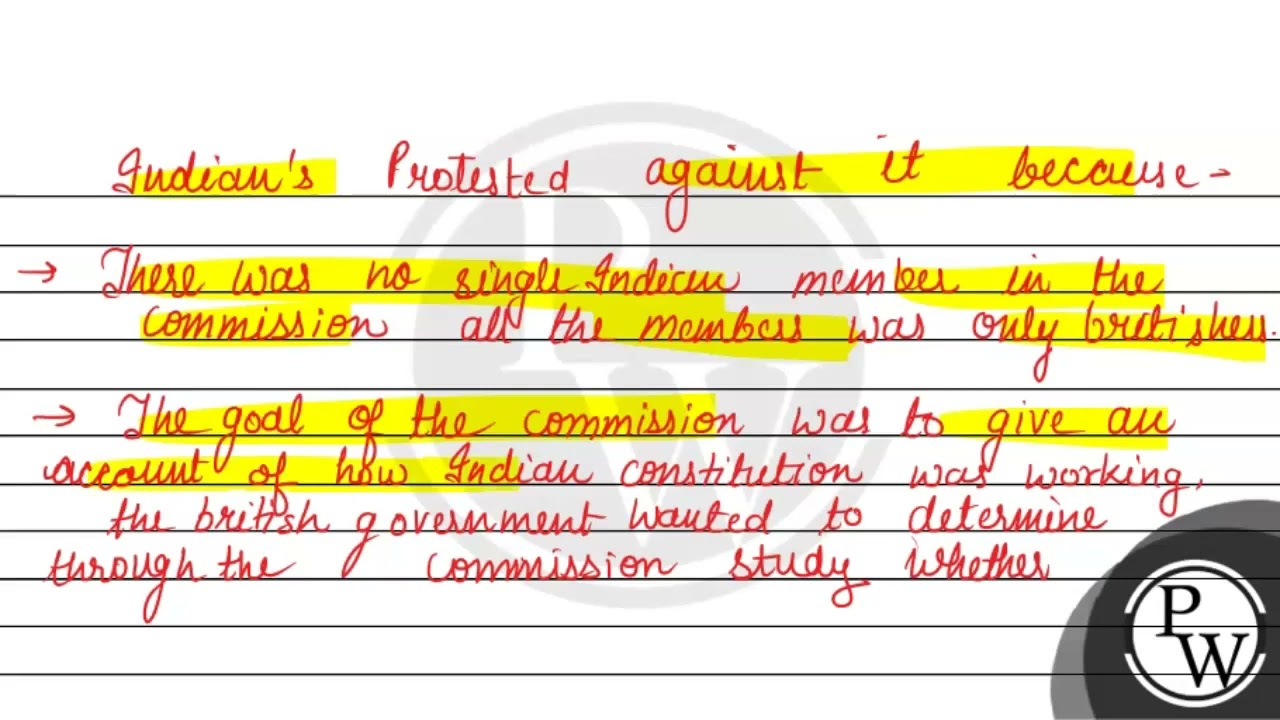 Indian's Protested against it because -
→ There was no single Indian member in the
commission all the members was only britishers.
→ The goal of the commission was to give an
account of how Indian constitution was working,
the british government wanted to determine
through the commission study whether
P
W
P
W